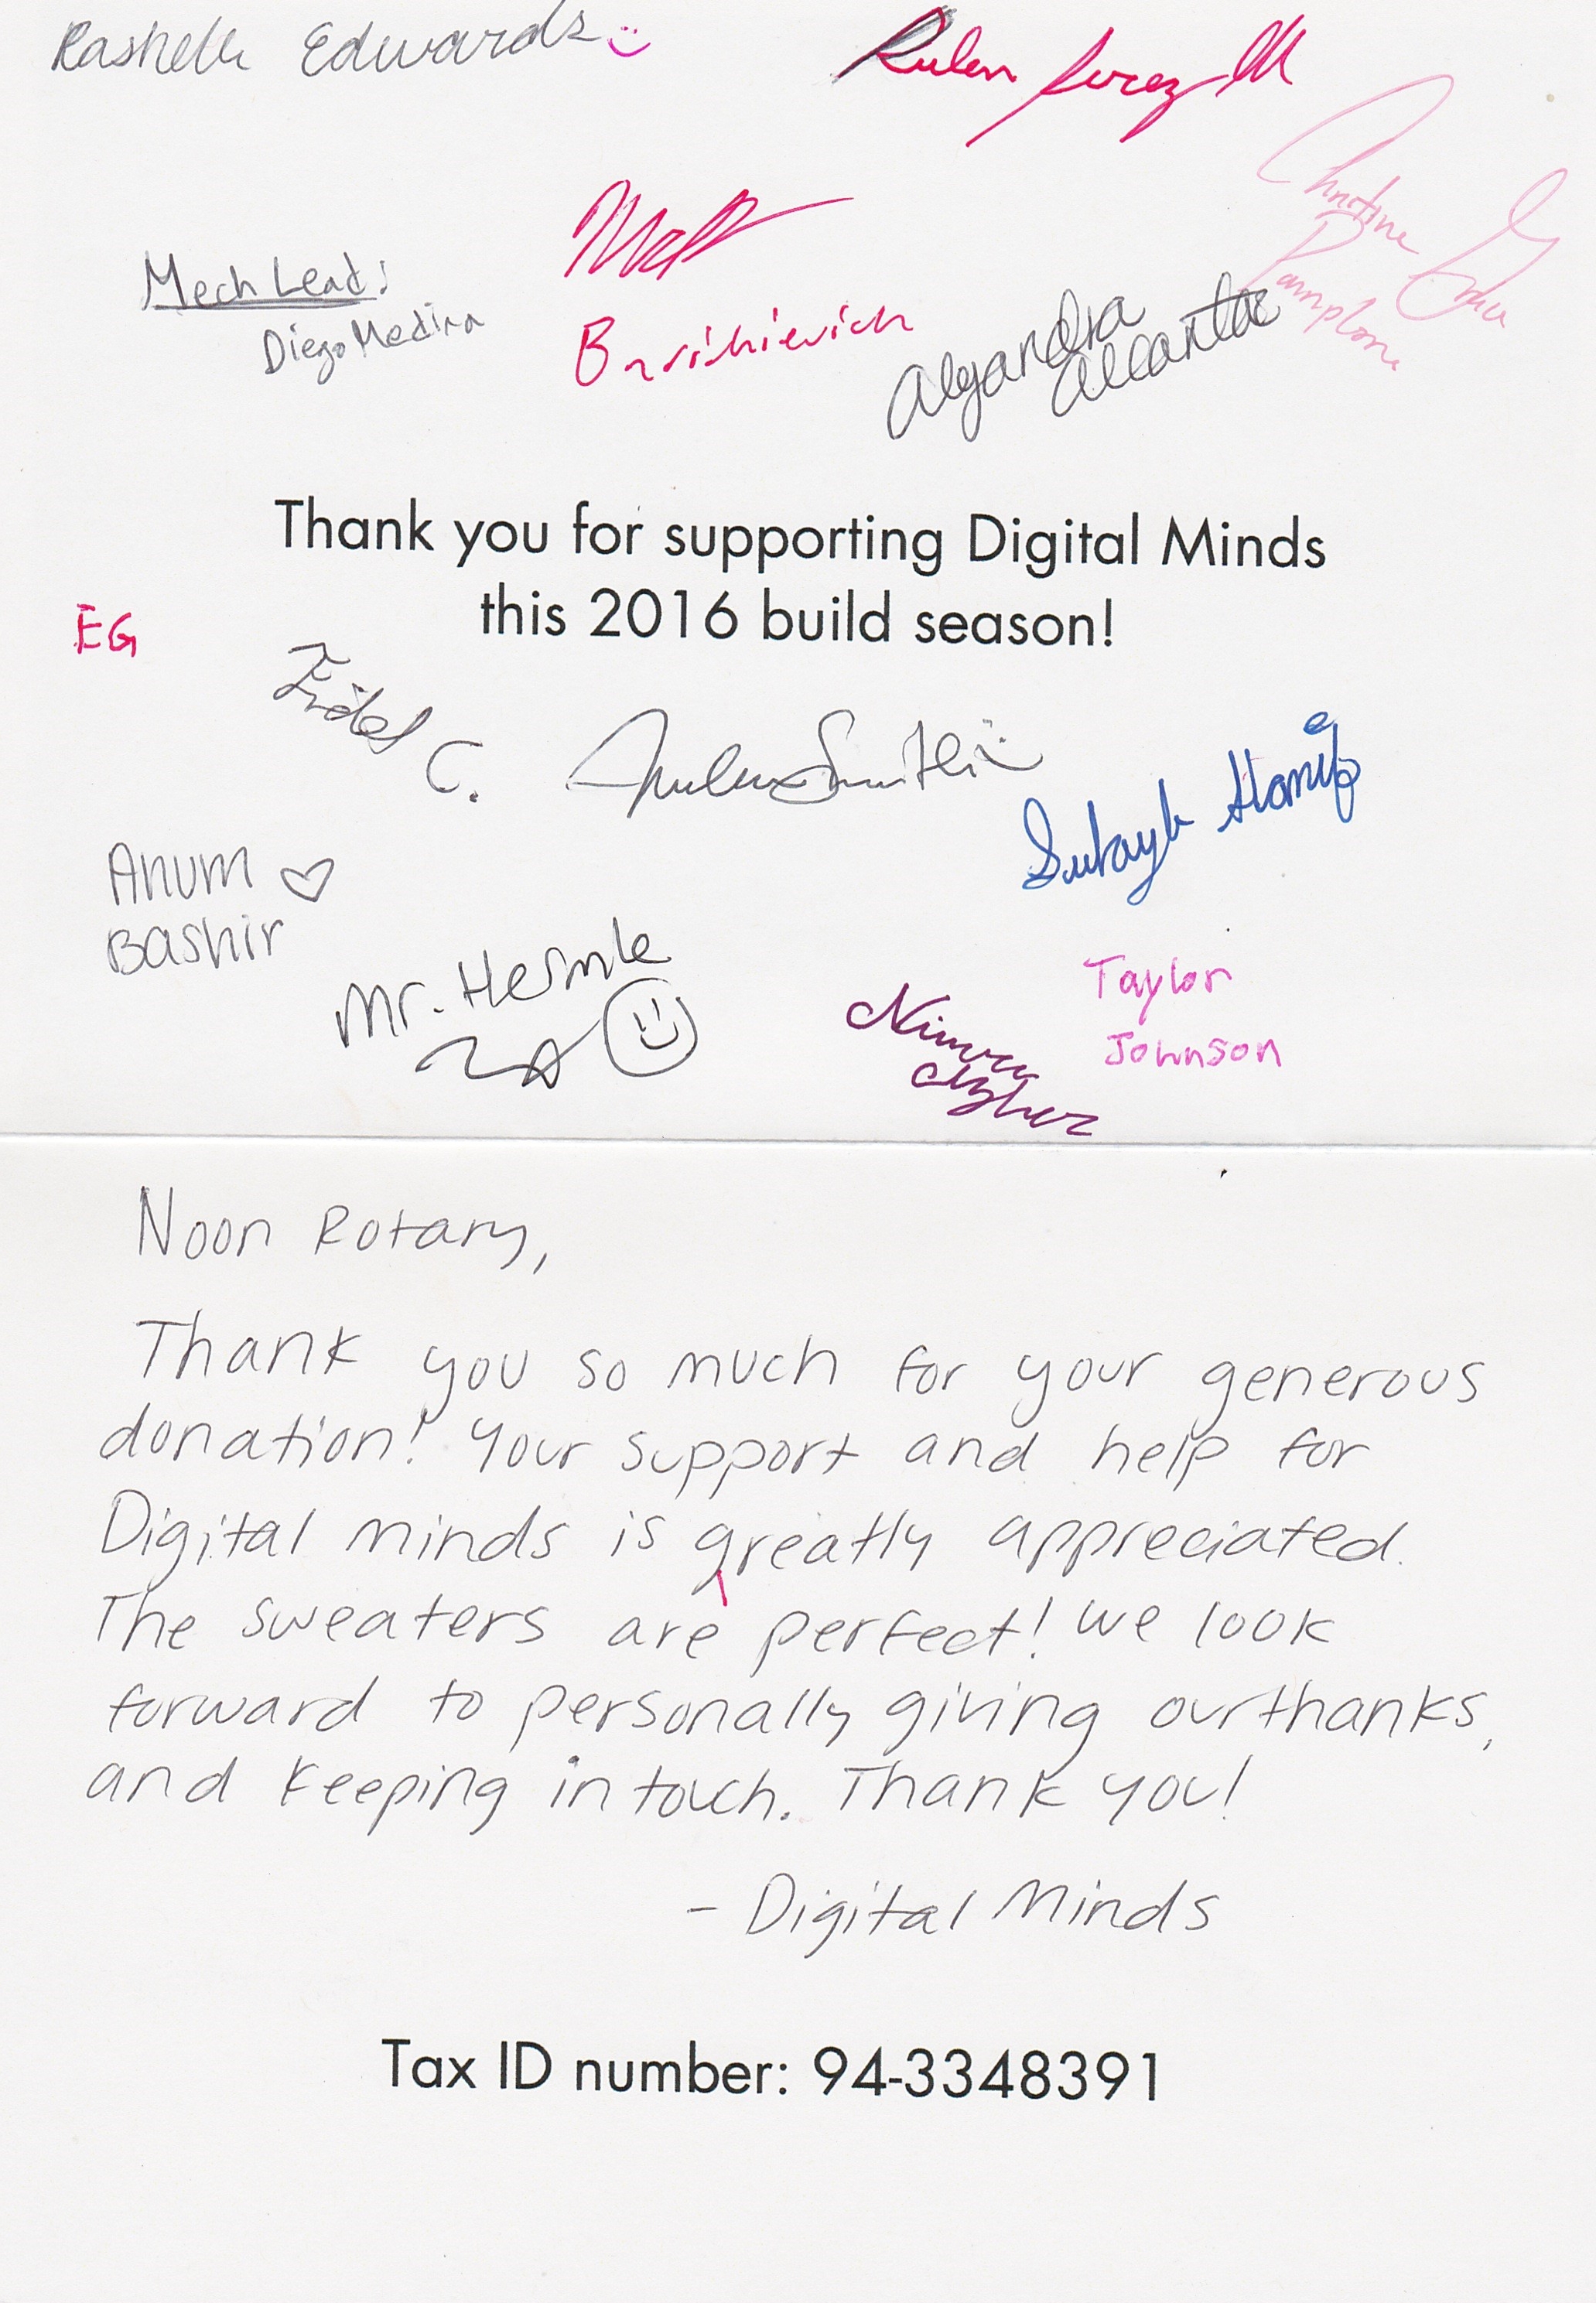 Rashelle Edwards
Ruben Perez
Matt
Mech Lead:
Diego Medina
Christine
Pamplona
Alejandra
EG
Thank you for supporting Digital Minds
this 2016 build season!
Fidel C.
Smith
Hanif
Anum
Bashir
Mr. Hermle
Taylor
Johnson
Noon Rotary,
Thank you so much for your generous
donation! Your support and help for
Digital Minds is greatly appreciated.
The sweaters are perfect! We look
forward to personally giving our thanks,
and keeping in touch. Thank you!
- Digital Minds
Tax ID number: 94-3348391